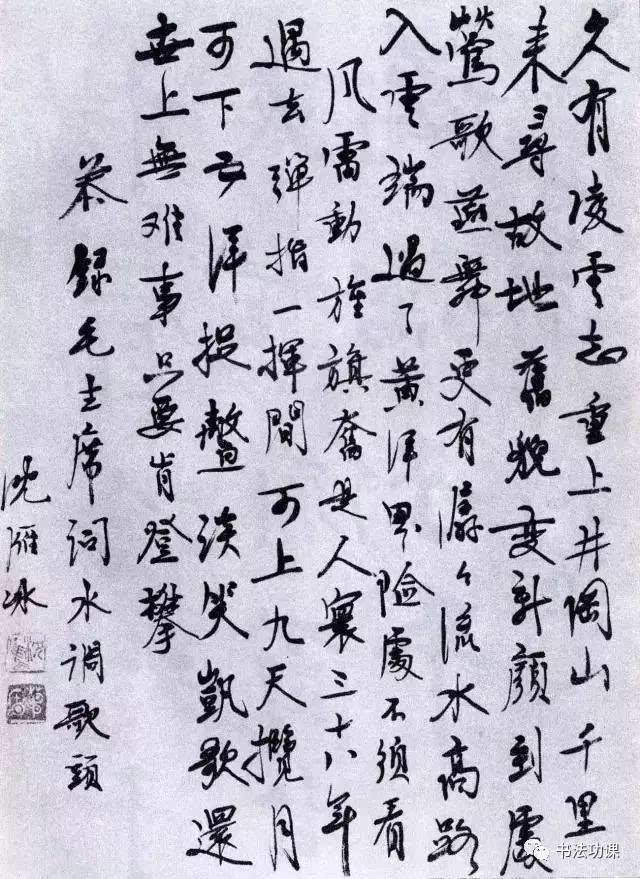 久有凌雲志重上井岡山千里
来尋故地舊貌变新顏到處
鶯歌燕舞更有潺々流水高路
入雲端過了黄洋界險處不須看
风雷動旌旗奮是人寰三十八年
過去彈指一揮間可上九天攬月
可下五洋捉鱉談笑凱歌還
世上無难事只要肯登攀
恭録毛主席词水調歌頭
沈雁冰
书法功课